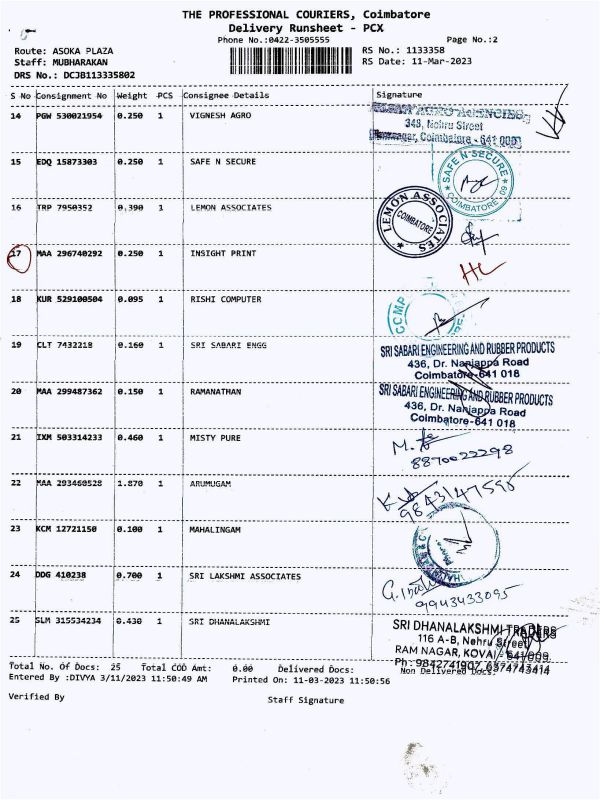 THE PROFESSIONAL COURIERS, Coimbatore
Delivery Runsheet - PCX
Phone No.:0422-3505555 Page No.:2
Route: ASOKA PLAZA RS No.: 1133358
Staff: MUBHARAKAN RS Date: 11-Mar-2023
DRS No.: DCJB113335802
S No Consignment No Weight PCS Consignee Details Signature
14 PGW 530021954 0.250 1 VIGNESH AGRO
348, Nehru Street
Coimbatore - 641 009
15 EDQ 15873303 0.250 1 SAFE N SECURE
SAFE N SECURE
COIMBATORE-09
16 TRP 7950352 0.390 1 LEMON ASSOCIATES
LEMON ASSOCIATES
COIMBATORE
17 MAA 296740292 0.250 1 INSIGHT PRINT
18 KUR 529100504 0.095 1 RISHI COMPUTER
19 CLT 7432218 0.160 1 SRI SABARI ENGG
SRI SABARI ENGINEERING AND RUBBER PRODUCTS
436, Dr. Nanjappa Road
Coimbatore-641 018
20 MAA 299487362 0.150 1 RAMANATHAN
SRI SABARI ENGINEERING AND RUBBER PRODUCTS
436, Dr. Nanjappa Road
Coimbatore-641 018
21 IXM 503314233 0.460 1 MISTY PURE
8870022298
22 MAA 293460528 1.870 1 ARUMUGAM
9843147595
23 KCM 12721150 0.100 1 MAHALINGAM
24 DDG 410238 0.700 1 SRI LAKSHMI ASSOCIATES
9943433095
25 SLM 315534234 0.430 1 SRI DHANALAKSHMI
SRI DHANALAKSHMI TRADERS
116 A-B, Nehru Street
RAM NAGAR, KOVAI - 641009
Ph : 9842741907, 0374743414
Total No. Of Docs: 25 Total COD Amt: 0.00 Delivered Docs: Non Delivered Docs:
Entered By :DIVYA 3/11/2023 11:50:49 AM Printed On: 11-03-2023 11:50:56
Verified By Staff Signature